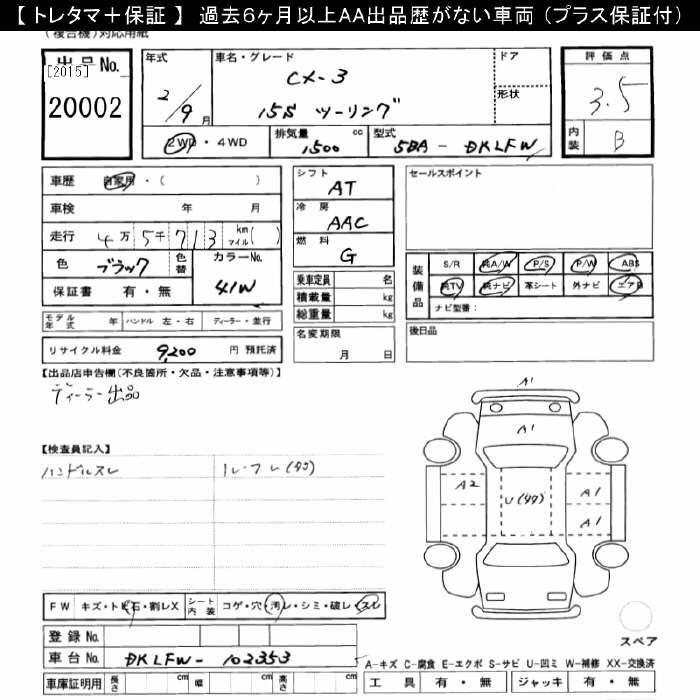 【 トレタマ＋保証 】 過去6ヶ月以上AA出品歴がない車両 (プラス保証付)
(複合機)対応用紙
出品No.
[2015]
20002
年式 2/9月
車名・グレード CX-3
15S ツーリング
ドア
形状
2WD ・ 4WD
排気量 1500 cc
型式 5BA - DKLFW
評価点 3.5
内装 B
車歴 自家用 ・ ( )
車検 年 月
走行 4万5千713 km マイル( )
色 ブラック 色替 カラーNo. 41W
保証書 有・無
モデル年式 年 ハンドル 左・右 ディーラー・並行
リサイクル料金 9,200 円 預託済
シフト AT
冷房 AAC
燃料 G
乗車定員 名
積載量 kg
総重量 kg
名変期限
月 日
セールスポイント
装備品 S/R 純A/W P/S P/W ABS
純TV 純ナビ 革シート 外ナビ エアB
ナビ型番:
後日品
【出品店申告欄(不良箇所・欠品・注意事項等)】
ディーラー出品
【検査員記入】
ハンドルスレ
A1
A1
A2
U(タタ)
A1
A1
FW キズ・トビ石・割レX シート内装 コゲ・穴・汚レ・シミ・破レ・スレ
登録No.
車台No. DKLFW- 102353
車庫証明用 長さ cm 幅 cm 高さ cm
スペア
A-キズ C-腐食 E-エクボ S-サビ U-凹ミ W-補修 XX-交換済
工具 有・無 ジャッキ 有・無